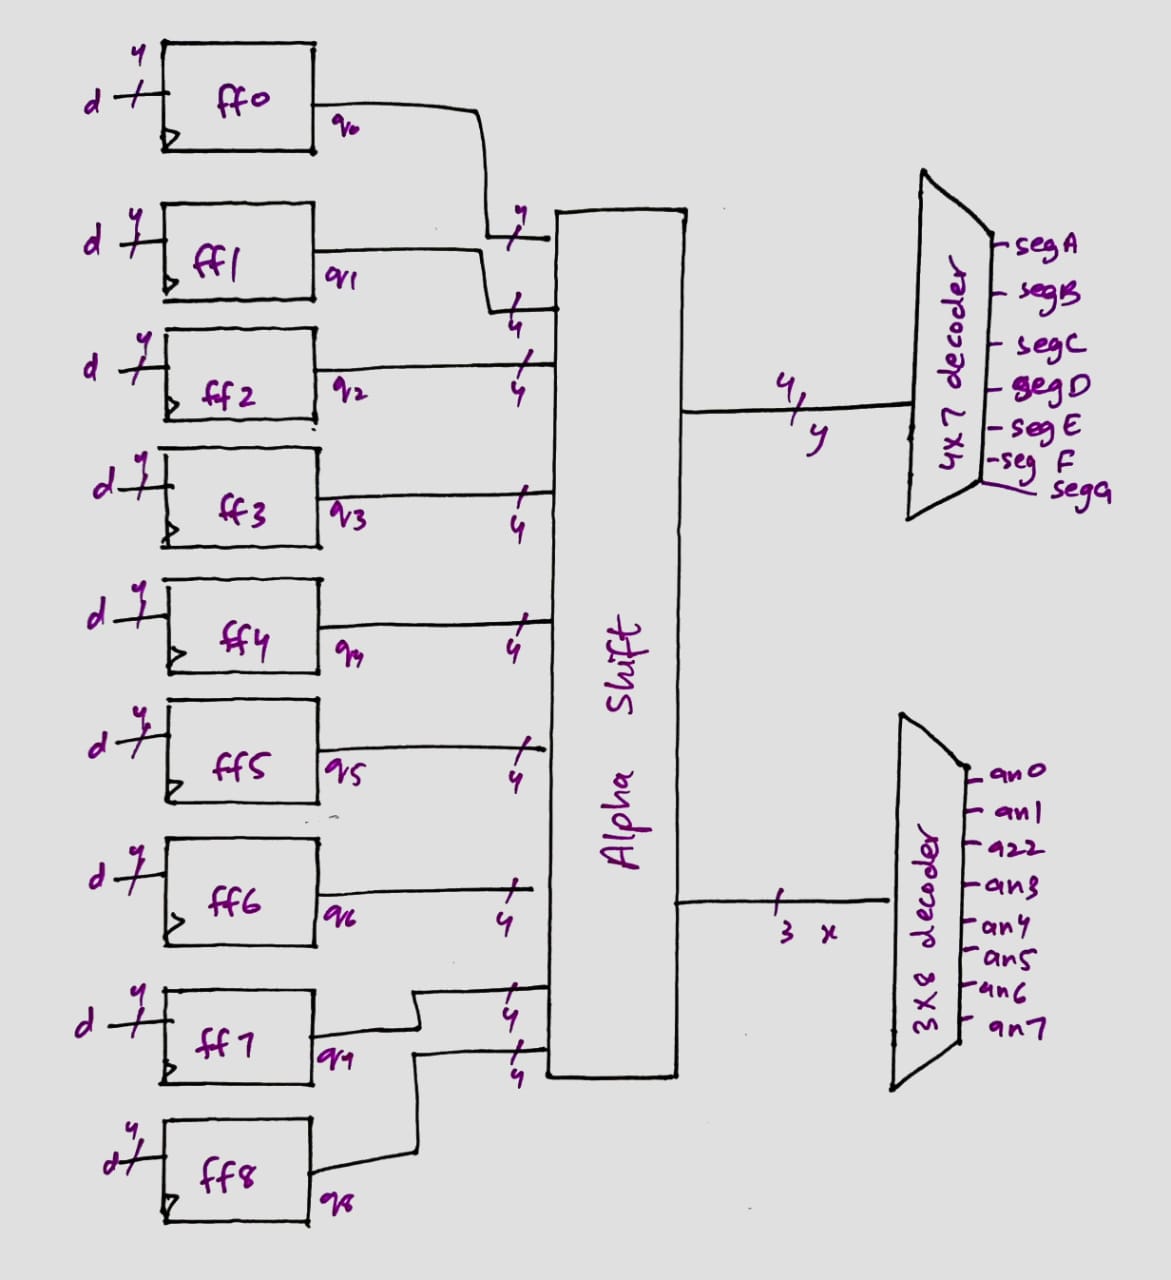 4
d
ff0
q0
4
d
ff1
q1
4
d
ff2
q2
4
d
ff3
q3
4
d
ff4
q4
4
d
ff5
q5
4
d
ff6
q6
4
d
ff7
q7
4
d
ff8
q8
4
4
4
4
4
4
4
4
4
Alpha Shift
4
y
4x7 decoder
segA
segB
segC
segD
segE
seg F
segG
3 x
3x8 decoder
an0
an1
a22
an3
an4
an5
an6
an7